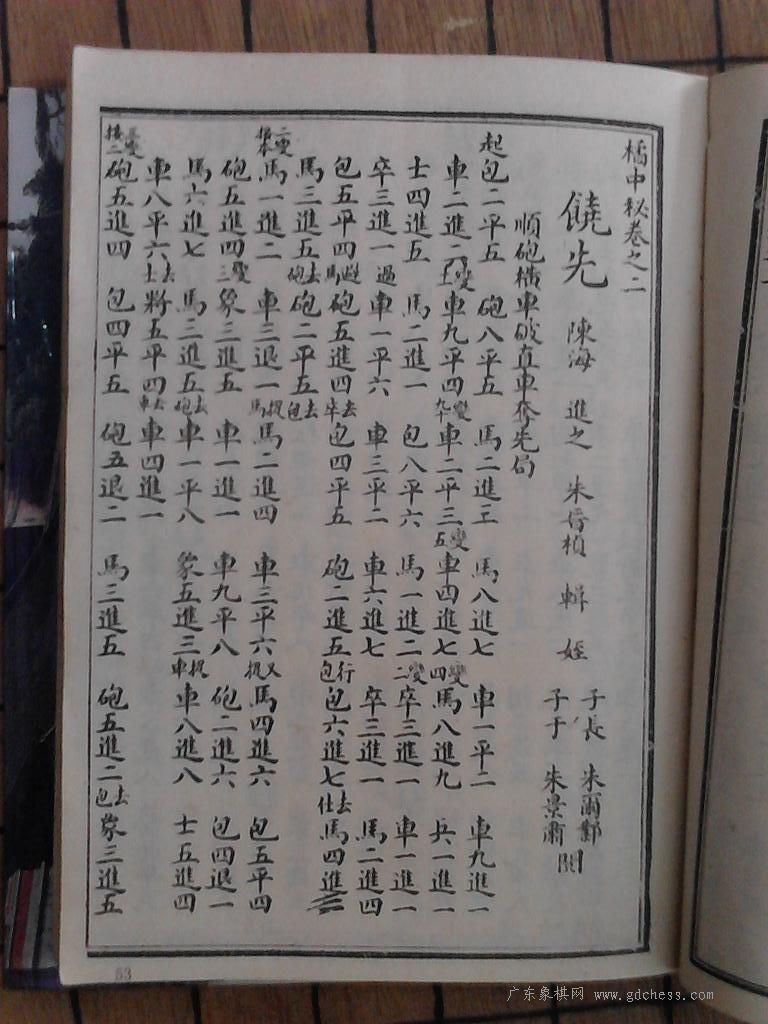 橘中秘卷之二
饒先 陳海 進之 朱晉楨 輯 姪 子長 朱爾鄴
子于 朱景肅 閱
順砲橫車破直車奪先局
起包二平五 砲八平五 馬二進三 馬八進七 車一平二 車九進一
車二進六變 車九平四變 車二平三變五 車四進七變四 馬八進九 兵一進一
士四進五 馬二進一 包八平六 馬一進二變二 卒三進一 車一進一
卒三進一過 車一平六 車三平二 車六進七 卒三進一 馬二進四
包五平四避馬 砲五進四去卒 包四平五 砲二進五行包 包六進七去仕 馬四進三
馬三進五去砲 砲二平五去包
二變接本 馬一進二 車三退一捉馬 馬二進四 車三平六又捉 馬四進六 包五平四
砲五進四變三 象三進五 車一進一 車九平八 砲二進六 包四退一
馬六進七 馬三進五去砲 車一平八 象五進三捉車 車八進八 士五進四
車八平六去士 將五平四去車 車四進一
三變接二 砲五進四 包四平五 砲五退二 馬三進五 砲五進二去包 象三進五
53
广东象棋网 www.gdchess.com